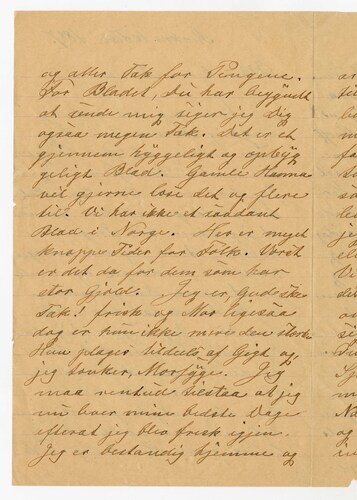 og atter Tak for Pengene.
For Bladet, Du har begyndt
at sende mig siger jeg Dig
ogsaa megen Tak. Det er et
gjennem hyggeligt og opbyg
geligt Blad. Gamle Hanna
vil gjerne læse det og flere
til. Vi har ikke et saadant
Blad i Norge. Her er meget
knappe Tider for Folk. Værst
er det da for dem som har
stor Gjæld. Jeg er, Gud ske
Tak! frisk og Mor ligesaa
dog er hun ikke mere den sterke
Hun plages tildels af Gigt og,
jeg tænker, Morsyge. Jeg
maa rentud tilstaa at jeg
nu lever mine bedste Dage
efterat jeg blev frisk igjen.
Jeg er bestandig hjemme og